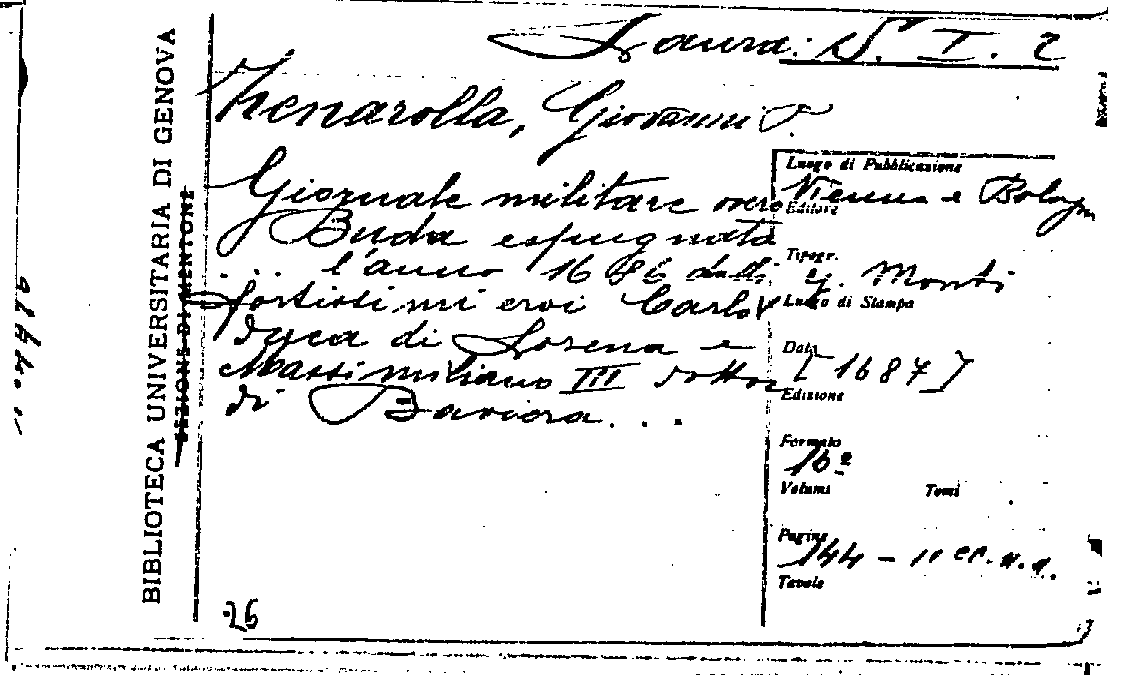 Laura: S. I. 2
Zenarolla, Giovanni P.
Giornale militare overo
Buda espugnata
... l'anno 1686 dalli
fortissimi eroi Carlo V
duca di Lorena e
Massimiliano III
di Baviera...
Luogo di Pubblicazione
Vienna e Bologna
Editore
Tipogr.
G. Monti
Luogo di Stampa
Data
[1687]
Edizione
Formato
16º
Volumi Tomi
Pagine
144 -
Tavole
26
BIBLIOTECA UNIVERSITARIA DI GENOVA
SEZIONE DI MENTONE